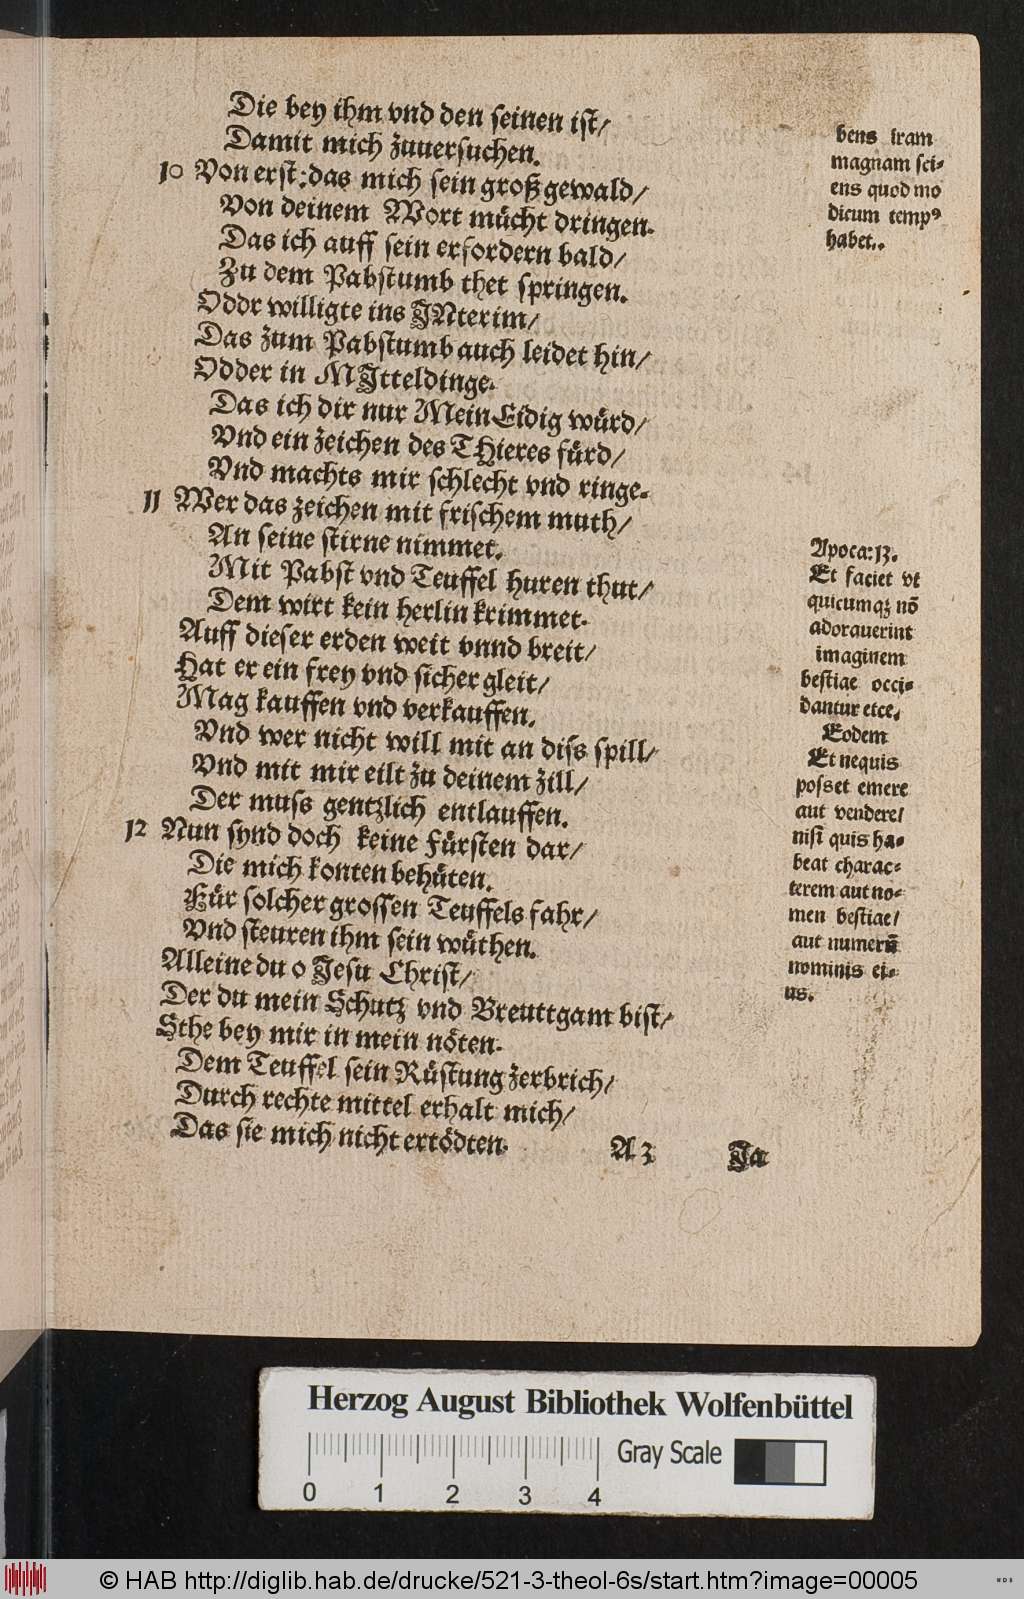 Die bey ihm vnd den seinen ist/
Damit mich zuuersuchen.
10 Von erst: das mich sein groß gewald/
Von deinem Wort mücht dringen.
Das ich auff sein erfordern bald/
Zu dem Pabstumb thet springen.
Oddr willigte ins JNterim/
Das zum Pabstumb auch leidet hin/
Odder in MJtteldinge.
Das ich dir nur MeinEidig würd/
Vnd ein zeichen des THieres fürd/
Vnd machts mir schlecht vnd ringe.
11 Wer das zeichen mit frischem muth/
An seine stirne nimmet.
Mit Pabst vnd Teuffel huren thut/
Dem wirt kein herlin krimmet.
Auff dieser erden weit vnnd breit/
Hat er ein frey vnd sicher gleit/
Mag kauffen vnd verkauffen.
Vnd wer nicht will mit an diss spill/
Vnd mit mir eilt zu deinem zill/
Der muss gentzlich entlauffen.
12 Nun synd doch keine Fürsten dar/
Die mich konten behüten.
Für solcher grossen Teuffels fahr/
Vnd steuren ihm sein wüthen.
Alleine du o Jesu Christ/
Der du mein Schutz vnd Breuttgam bist/
Sthe bey mir in mein nöten.
Dem Teuffel sein Rüstung zerbrich/
Durch rechte mittel erhalt mich/
Das sie mich nicht ertödten.
A 3 Ja
bens iram
magnam sci-
ens quod mo
dicum tempꝰ
habet..
Apoca: 13.
Et faciet vt
quicumqꝫ nō
adorauerint
imaginem
bestiae occi-
dantur etce.
Eodem
Et nequis
posset emere
aut vendere/
nisi quis ha-
beat charac-
terem aut no-
men bestiae/
aut numerū
nominis ei-
us.
Herzog August Bibliothek Wolfenbüttel
Gray Scale
0 1 2 3 4
© HAB http://diglib.hab.de/drucke/521-3-theol-6s/start.htm?image=00005
WDB